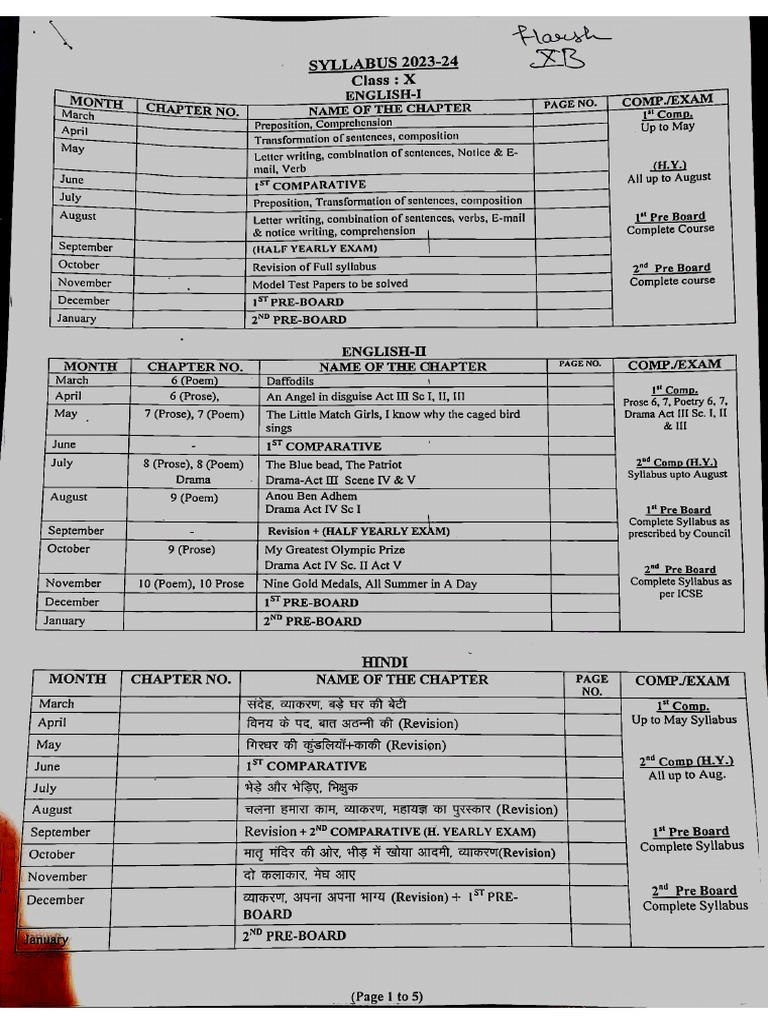 Harsh
XB
SYLLABUS 2023-24
Class : X
ENGLISH-I
MONTH CHAPTER NO. NAME OF THE CHAPTER PAGE NO. COMP./EXAM
March Preposition, Comprehension 1st Comp.
April Transformation of sentences, composition Up to May
May Letter writing, combination of sentences, Notice & E-
mail, Verb (H.Y.)
June 1ST COMPARATIVE All up to August
July Preposition, Transformation of sentences, composition
August Letter writing, combination of sentences, verbs, E-mail 1st Pre Board
& notice writing, comprehension Complete Course
September (HALF YEARLY EXAM)
October Revision of Full syllabus 2nd Pre Board
November Model Test Papers to be solved Complete course
December 1ST PRE-BOARD
January 2ND PRE-BOARD
ENGLISH-II
MONTH CHAPTER NO. NAME OF THE CHAPTER PAGE NO. COMP./EXAM
March 6 (Poem) Daffodils 1st Comp.
April 6 (Prose), An Angel in disguise Act III Sc I, II, III Prose 6, 7, Poetry 6, 7,
May 7 (Prose), 7 (Poem) The Little Match Girls, I know why the caged bird Drama Act III Sc. I, II
sings & III
June - 1ST COMPARATIVE
July 8 (Prose), 8 (Poem) The Blue bead, The Patriot 2nd Comp (H.Y.)
Drama Drama-Act III Scene IV & V Syllabus upto August
August 9 (Poem) Anou Ben Adhem
Drama Act IV Sc I 1st Pre Board
September - Revision + (HALF YEARLY EXAM) Complete Syllabus as
prescribed by Council
October 9 (Prose) My Greatest Olympic Prize
Drama Act IV Sc. II Act V 2nd Pre Board
November 10 (Poem), 10 Prose Nine Gold Medals, All Summer in A Day Complete Syllabus as
December 1ST PRE-BOARD per ICSE
January 2ND PRE-BOARD
HINDI
MONTH CHAPTER NO. NAME OF THE CHAPTER PAGE NO. COMP./EXAM
March संदेह, व्याकरण, बड़े घर की बेटी 1st Comp.
April विनय के पद, बात अठन्नी की (Revision) Up to May Syllabus
May गिरधर की कुंडलियाँ+काकी (Revision)
June 1ST COMPARATIVE 2nd Comp (H.Y.)
July भेड़े और भेड़िए, भिक्षुक All up to Aug.
August चलना हमारा काम, व्याकरण, महायज्ञ का पुरस्कार (Revision)
September Revision + 2ND COMPARATIVE (H. YEARLY EXAM) 1st Pre Board
October मातृ मंदिर की ओर, भीड़ में खोया आदमी, व्याकरण(Revision) Complete Syllabus
November दो कलाकार, मेघ आए
December व्याकरण, अपना अपना भाग्य (Revision) + 1ST PRE- 2nd Pre Board
BOARD Complete Syllabus
January 2ND PRE-BOARD
(Page 1 to 5)